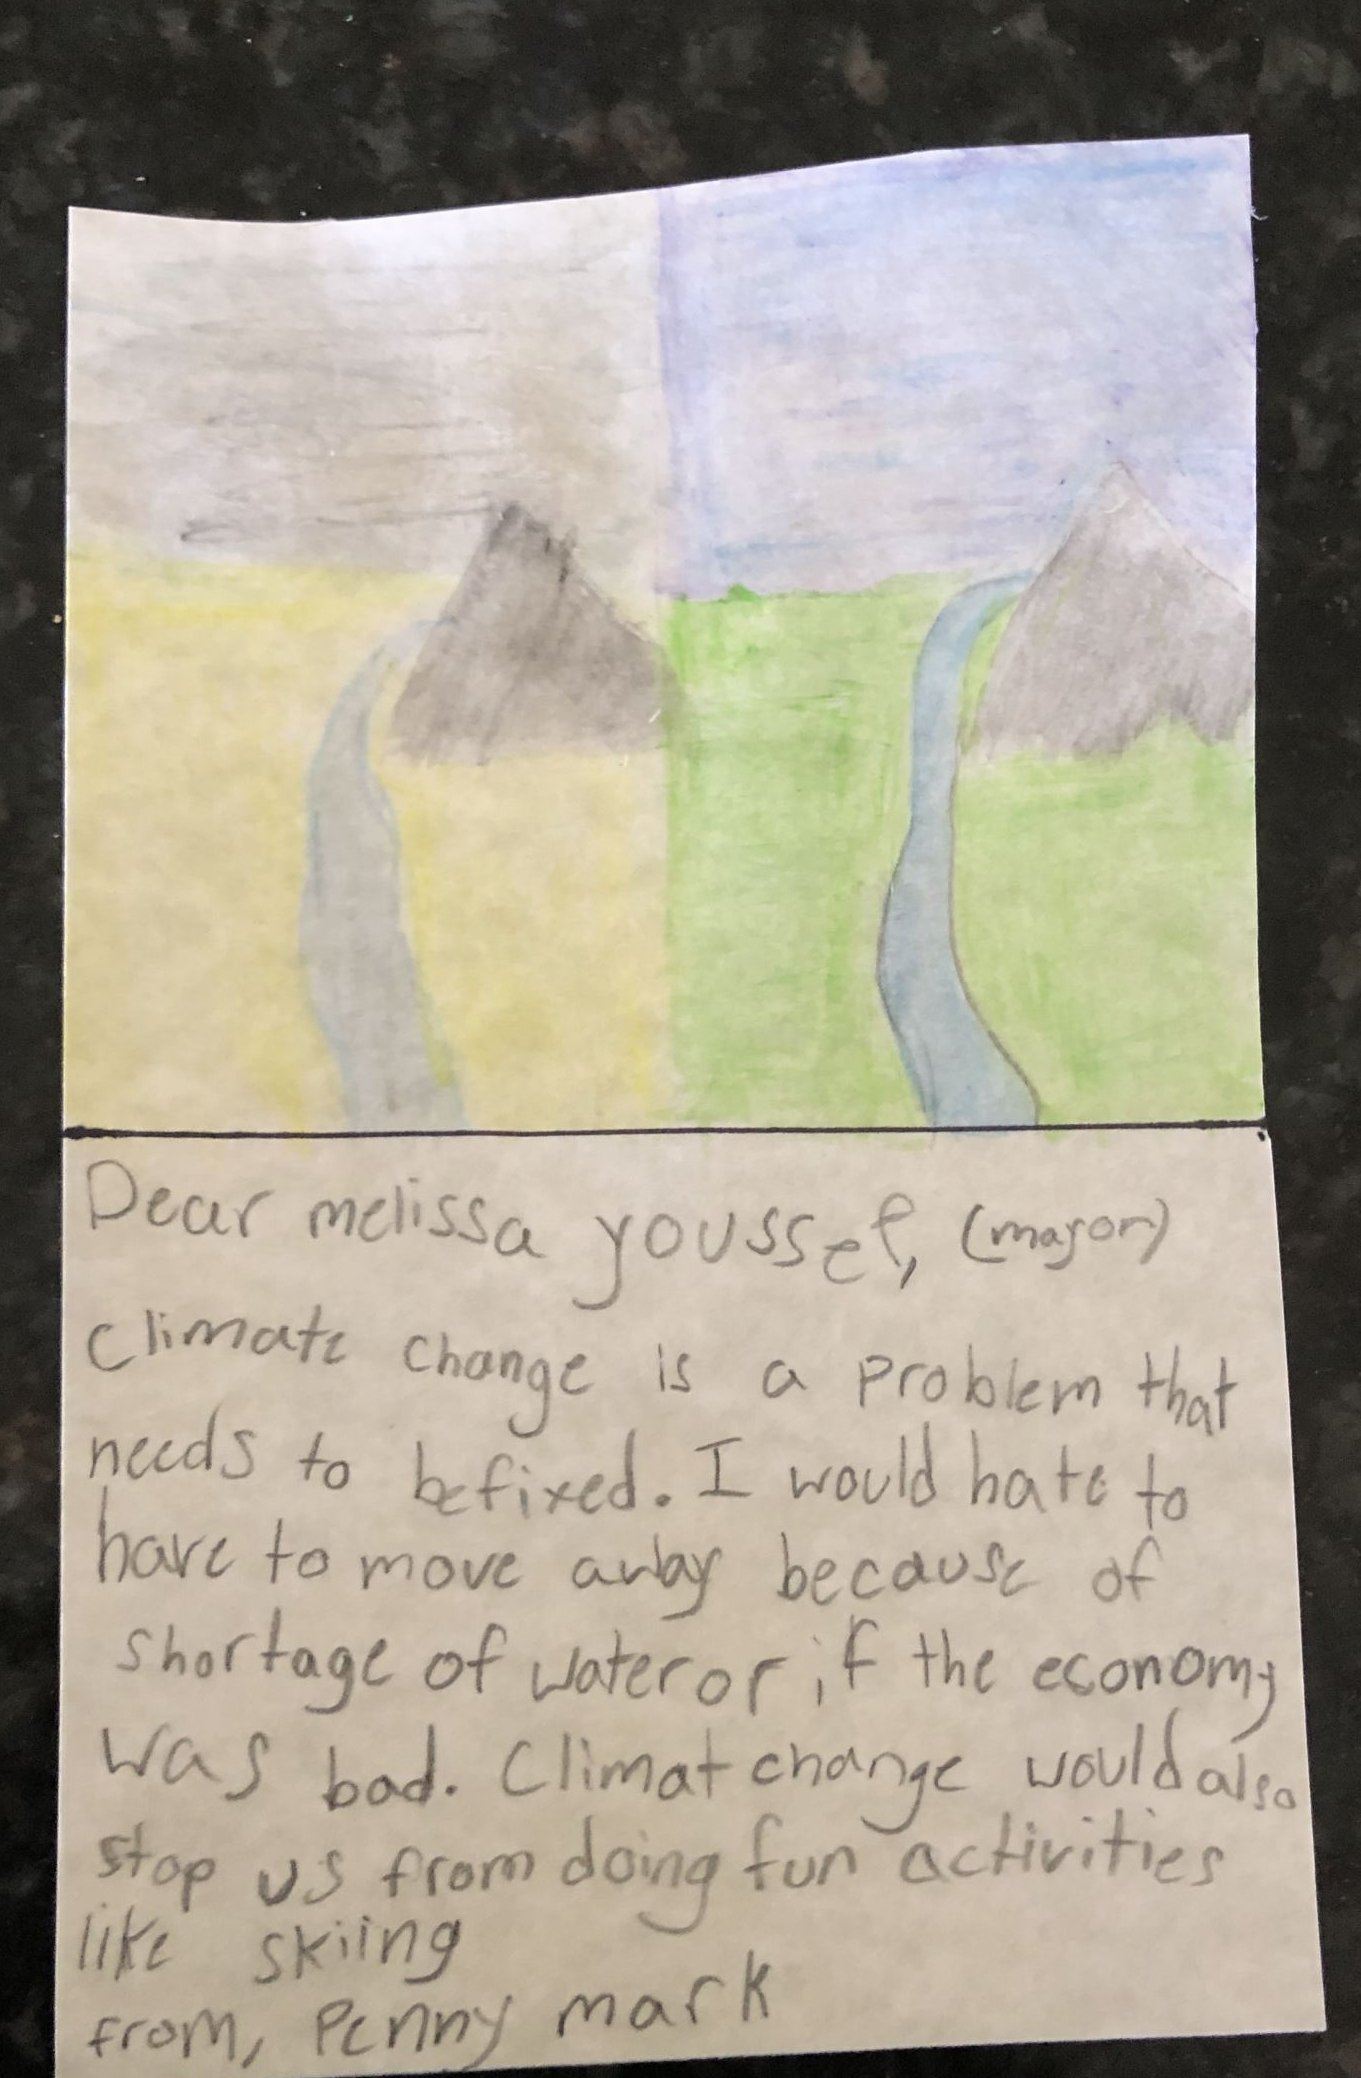 Dear melissa youssef, (mayor)
climate change is a problem that
needs to be fixed. I would hate to
have to move away because of
shortage of water or if the economy
was bad. Climat change would also
stop us from doing fun activities
like skiing
from, Penny mark